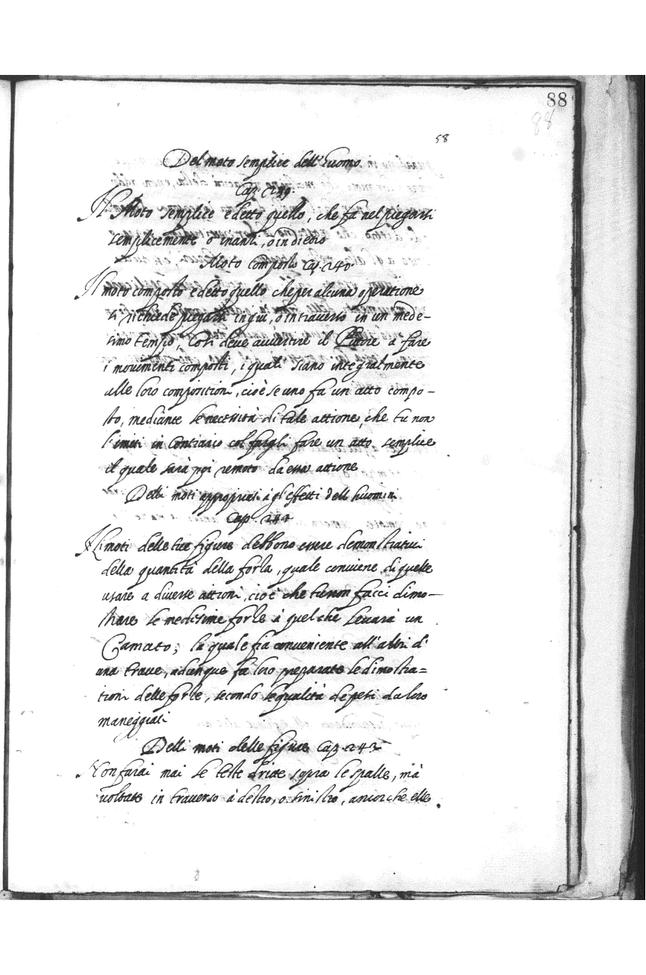 88
88
58
Del moto semplice dell'huomo.
Cap. 239.
Il Moto semplice è detto quello, che fà nel piegarsi
semplicemente ò inanti, ò indietro
Moto composto Cap. 240
Il moto composto è detto quello che per alcuna operatione
si richiede piegarsi in giù, ò in traverso in un mede-
simo tempo, Così deve avvertire il Pittore à fare
i movimenti composti, i quali siano integralmente
alle loro compositioni, cioè se uno fà un atto compo-
sto, mediante la necessità di tale attione, che tu non
l'imiti in Contrario col fargli fare un atto semplice
il quale sarà poi remoto da essa attione
Delli moti appropriati à gl'effetti dell'huomini.
Cap. 241
Li moti delle tue figure debbono essere demonstrativi
della quantità della forza, quale conviene di quelle
usare à diverse attioni, cioè che tu non facci dimo-
strare le medesime forze à quel che levarà un
Camato; la quale fia conveniente all'alzar di
una trave, adunque fà loro preparate le dimostra-
tioni delle forze, secondo le qualità de pesi da loro
maneggiati
Delli moti delle figure Cap. 242
Non farai mai le teste dritte sopra le spalle, mà
voltate in traverso à destro, ò sinistro, ancorche elle